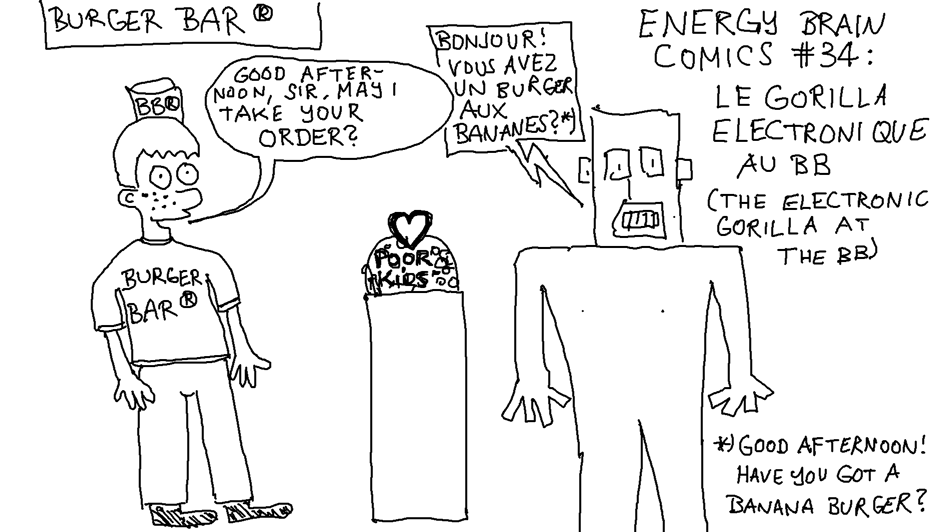 BURGER BAR ®
ENERGY BRAIN
COMICS #34:
LE GORILLA
ELECTRONIQUE
AU BB
(THE ELECTRONIC
GORILLA AT
THE BB)
BB®
GOOD AFTER-
NOON, SIR, MAY I
TAKE YOUR
ORDER?
BONJOUR!
VOUS AVEZ
UN BURGER
AUX
BANANES?*)
POOR
KIDS
BURGER
BAR ®
*) GOOD AFTERNOON!
HAVE YOU GOT A
BANANA BURGER?